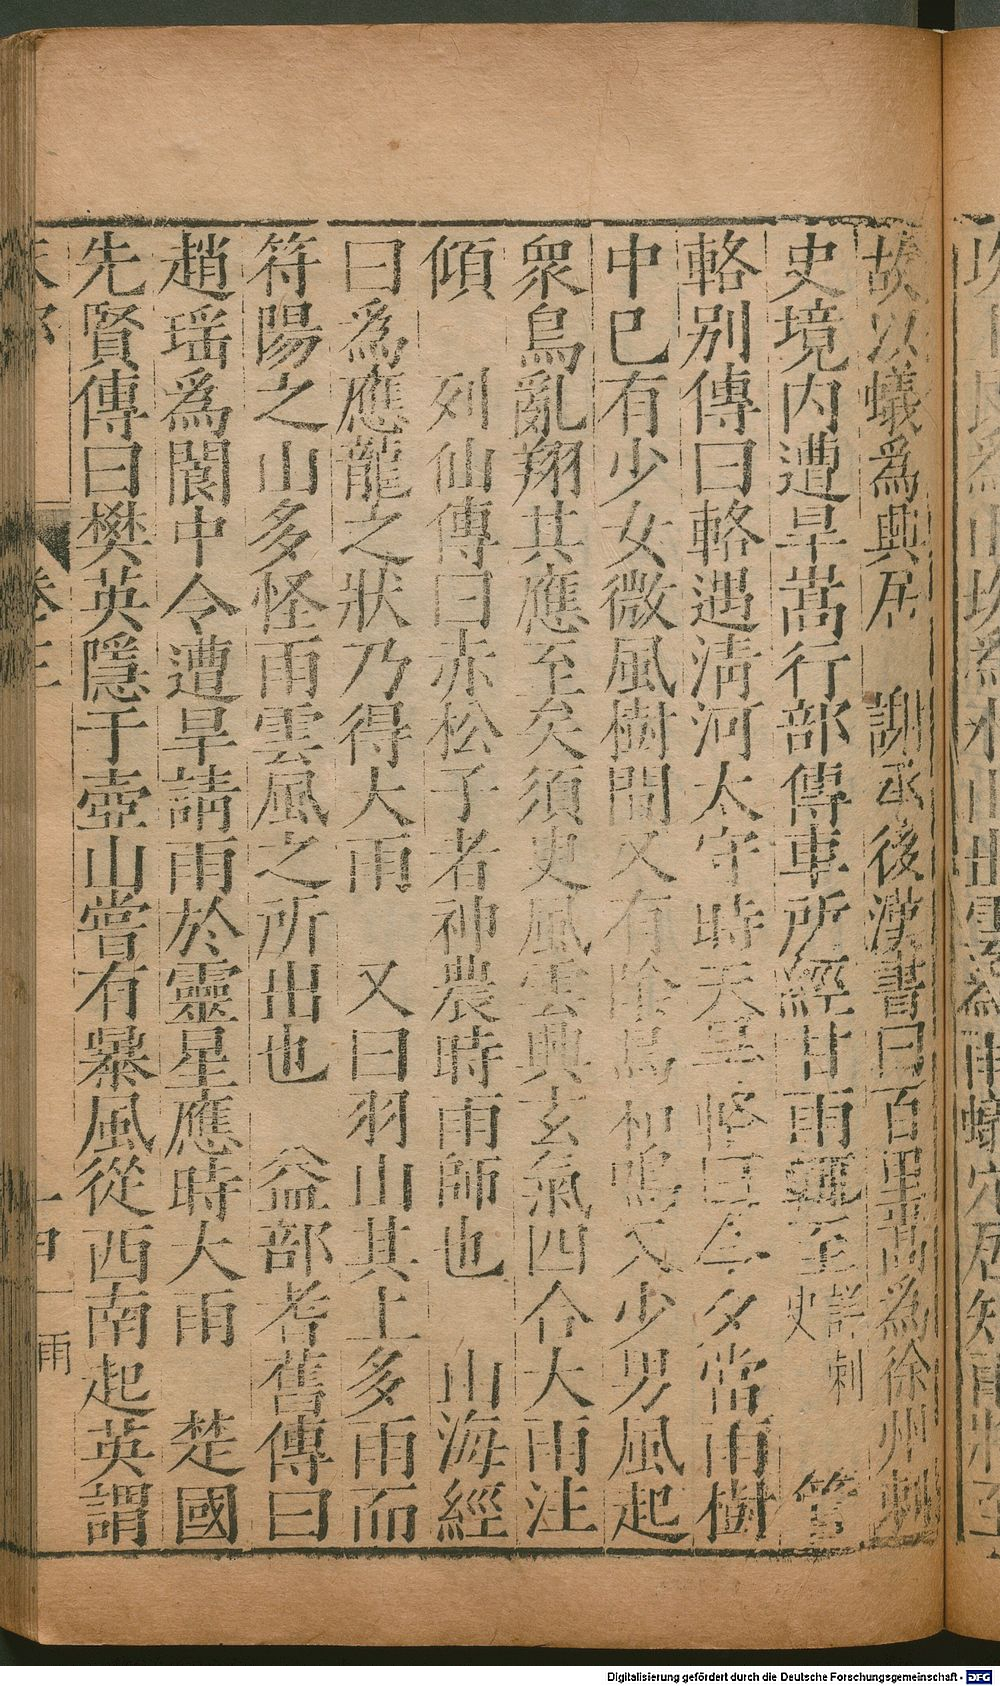 故以蟻爲興居　謝承後漢書曰百里嵩爲徐州刺
史境内遭旱嵩行部傳車所經甘雨輒至詳刺史　管
輅別傳曰輅過淸河太守時天旱輅曰今夕當雨樹
中巳有少女微風樹間又有陰鳥和鳴又少男風起
衆鳥亂翔其應至矣須臾風雲興玄氣四合大雨注
傾　列仙傳曰赤松子者神農時雨師也　山海經
曰爲應龍之狀乃得大雨　又曰羽山其上多雨而
符陽之山多怪雨雲風之所出也　益部耆舊傳曰
趙瑶爲閬中令遭旱請雨於靈星應時大雨　楚國
先賢傳曰樊英隱于壺山嘗有暴風從西南起英謂
卷三
雨
Digitalisierung gefördert durch die Deutsche Forschungsgemeinschaft - DFG